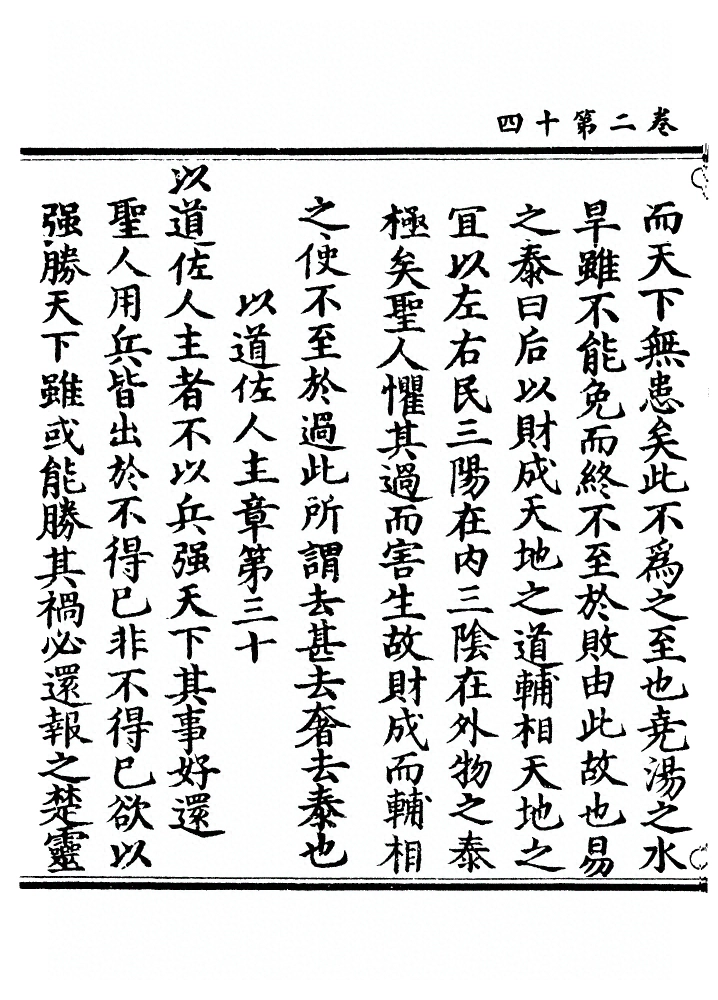 卷二第十四
而天下無患矣此不爲之至也堯湯之水
旱雖不能免而終不至於敗由此故也易
之泰曰后以財成天地之道輔相天地之
冝以左右民三陽在内三隂在外物之泰
極矣聖人懼其過而害生故財成而輔相
之使不至於過此所謂去甚去奢去泰也
以道佐人主章第三十
以道佐人主者不以兵强天下其事好還
聖人用兵皆出於不得已非不得已欲以
强勝天下雖或能勝其禍必還報之楚靈